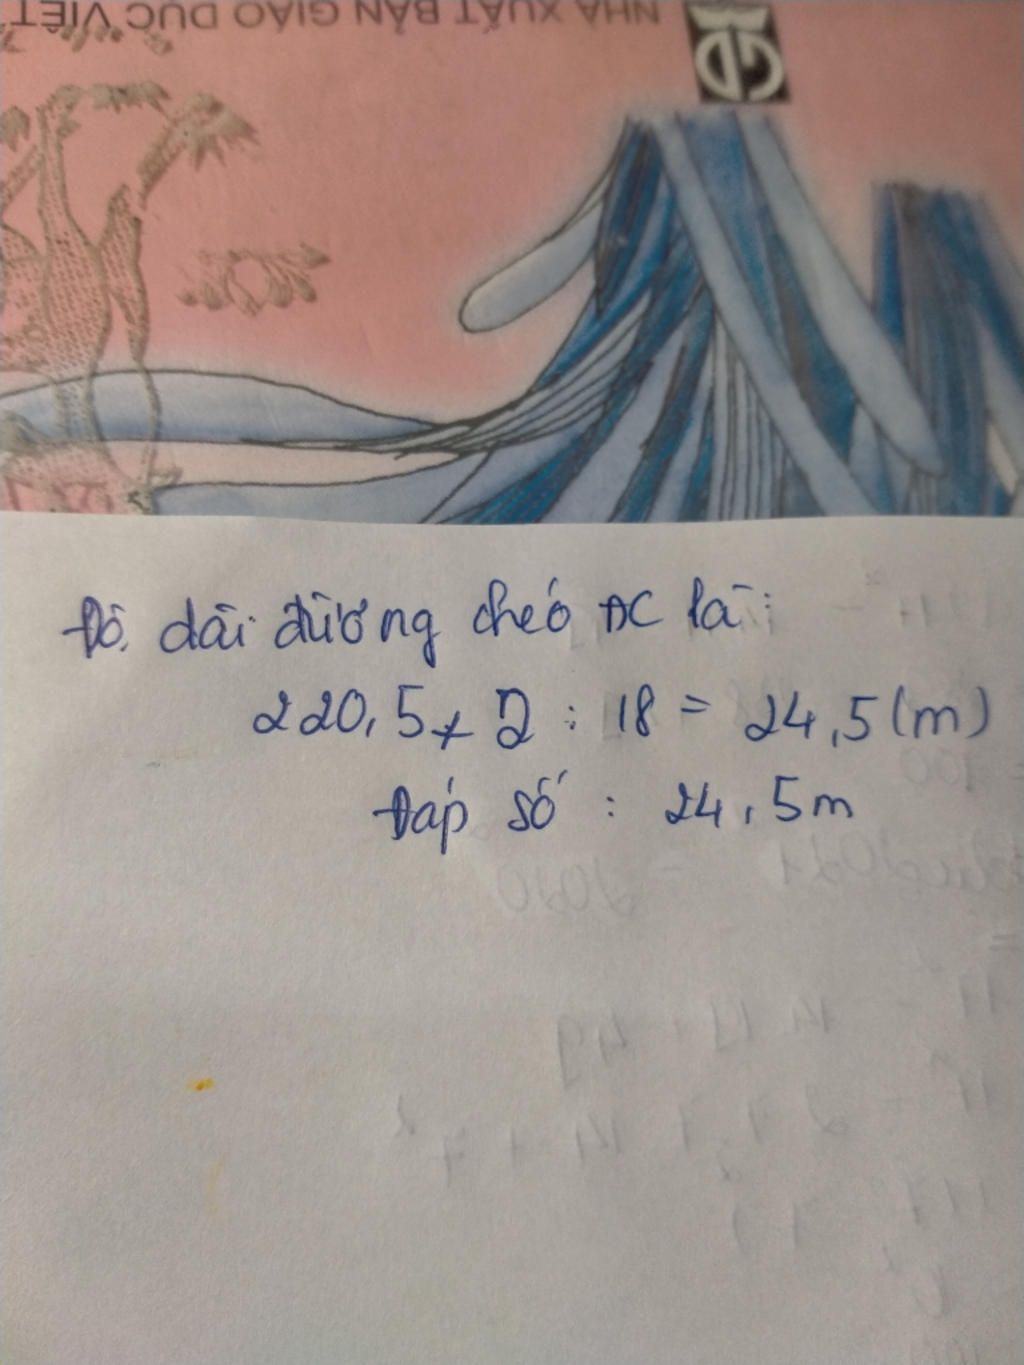 NHÀ XUẤT BẢN GIÁO DỤC VIỆT
GD
Độ dài đường chéo AC là:
220,5 x 2 : 18 = 24,5 (m)
Đáp số : 24,5m